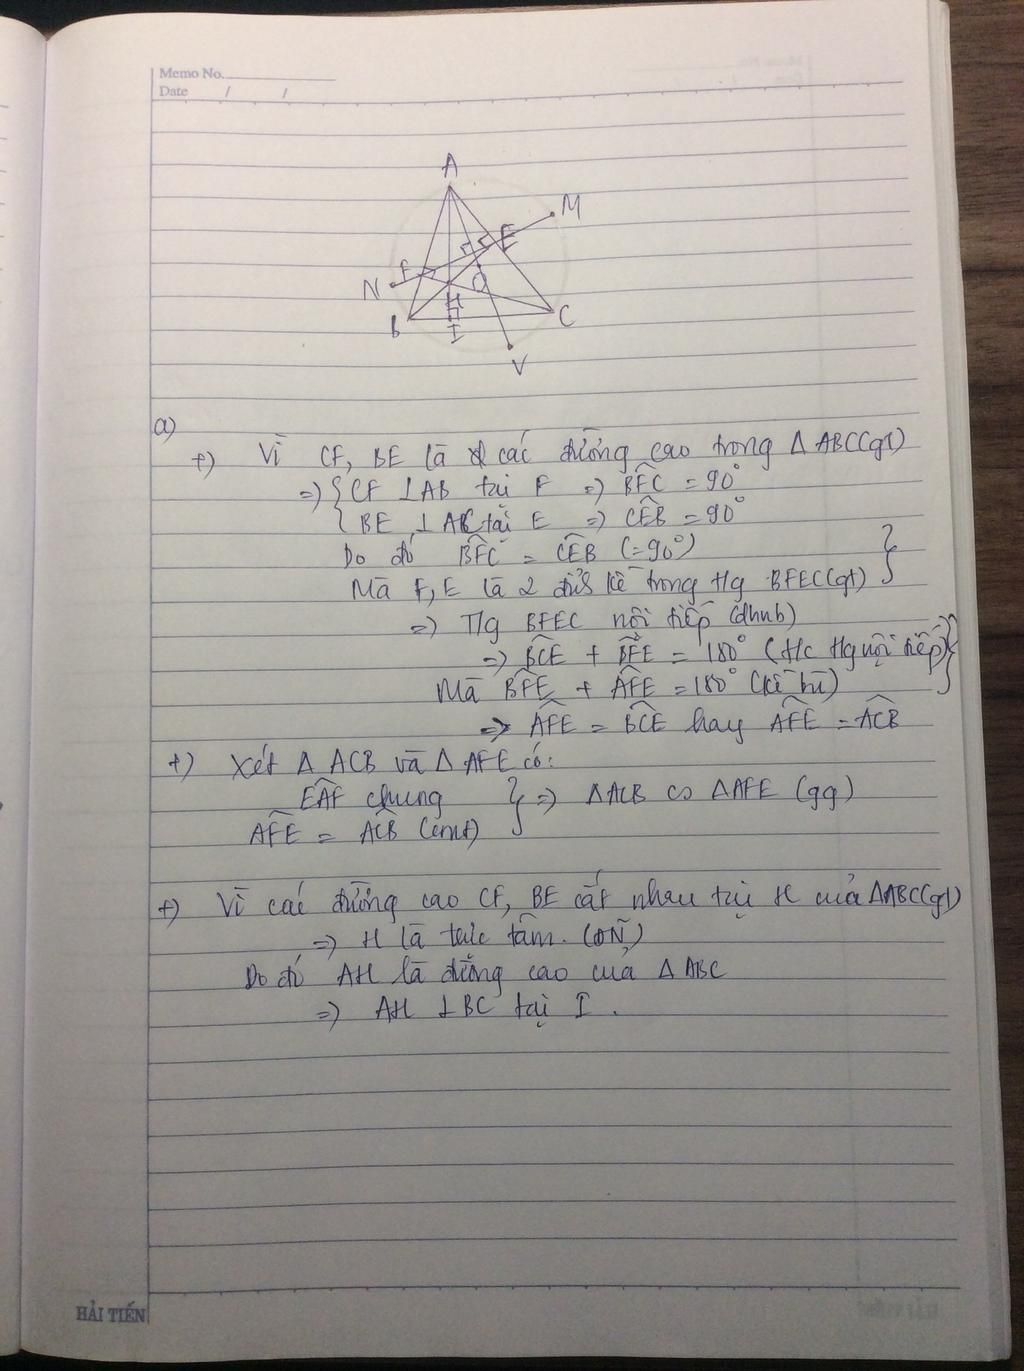 Memo No.
Date / /
A
M
E
F
N
O
H
B
I
C
V
a)
+) Vì CF, BE là các đường cao trong Δ ABC(gt)
=) { CF ⊥AB tại F =) BFC = 90°
{ BE ⊥ AC tại E =) CEB = 90°
Do đó BFC = CEB (=90°)
Mà F, E là 2 đỉnh kề trong tg BFEC(gt) }
=) Tg BFEC nội tiếp (dhnb)
=) BCE + BFE = 180° (t/c tg nội tiếp)
Mà BFE + AFE = 180° (kề bù) }
=) AFE = BCE hay AFE = ACB
+) Xét Δ ACB và Δ AFE có:
EAF chung } =) ΔACB ∽ ΔAFE (gg)
AFE = ACB (cmt)
+) Vì các đường cao CF, BE cắt nhau tại H của ΔABC(gt)
=) H là trực tâm. (ĐN)
Do đó AH là đường cao của Δ ABC
=) AH ⊥BC tại I .
HẢI TIẾN